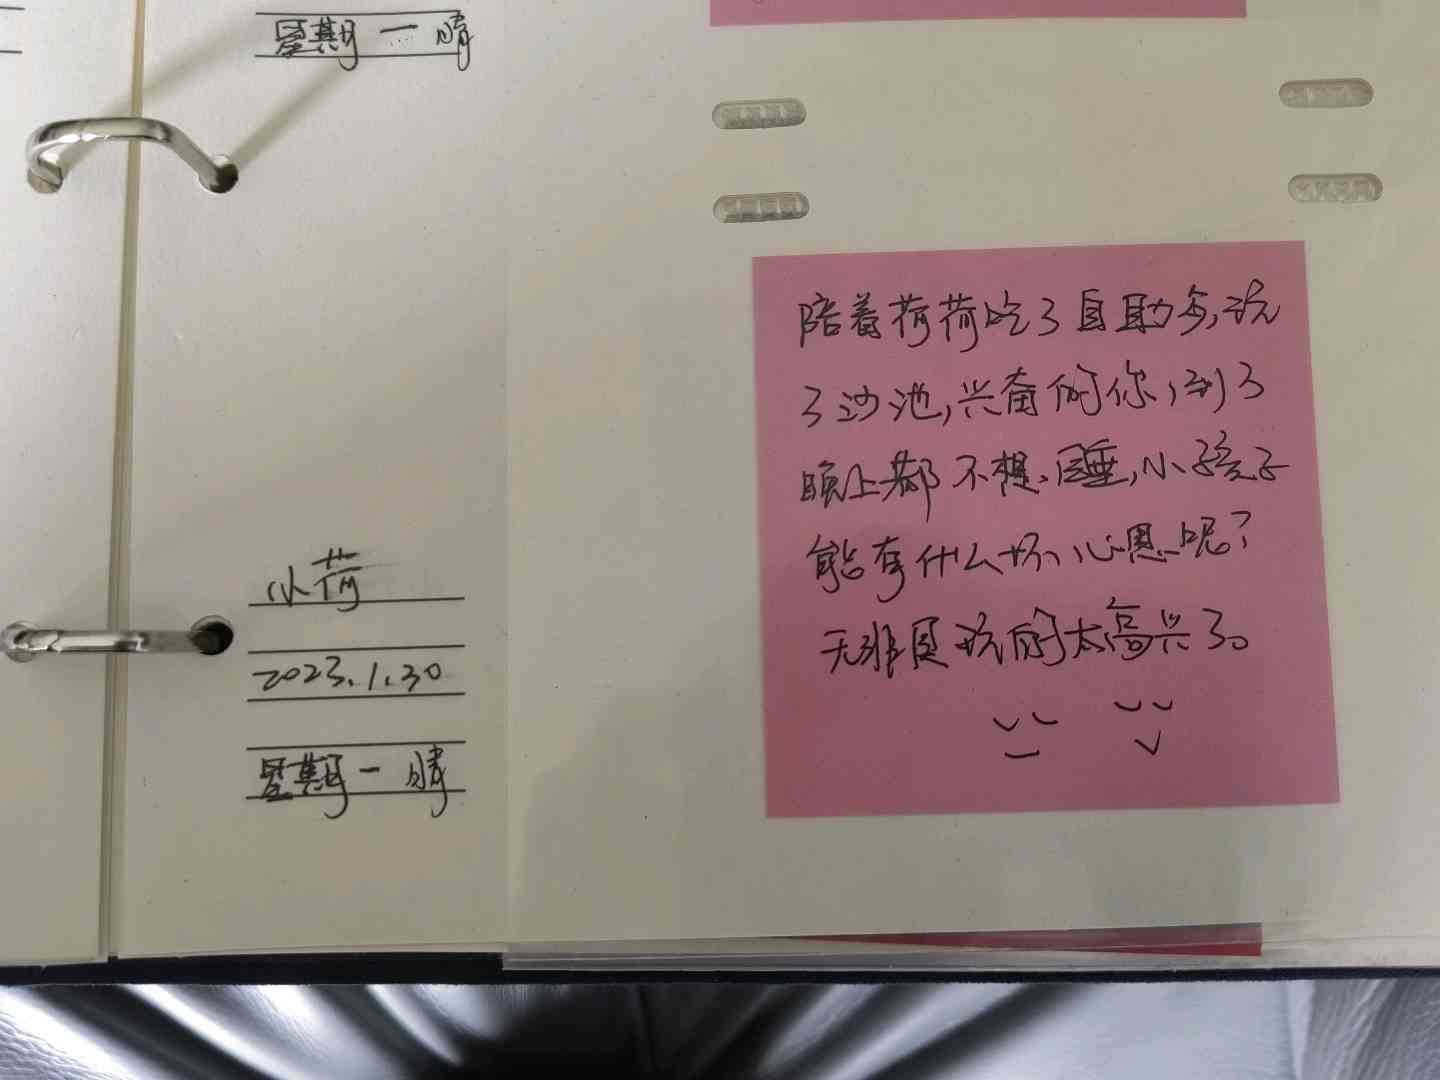 星期一 晴
小荷
2023.1.30
星期一 晴
陪着荷荷吃了自助歺,玩
了沙池,兴奋的你,到了
晚上都不想睡,小孩子
能有什么坏心思呢?
无非是玩的太高兴了。